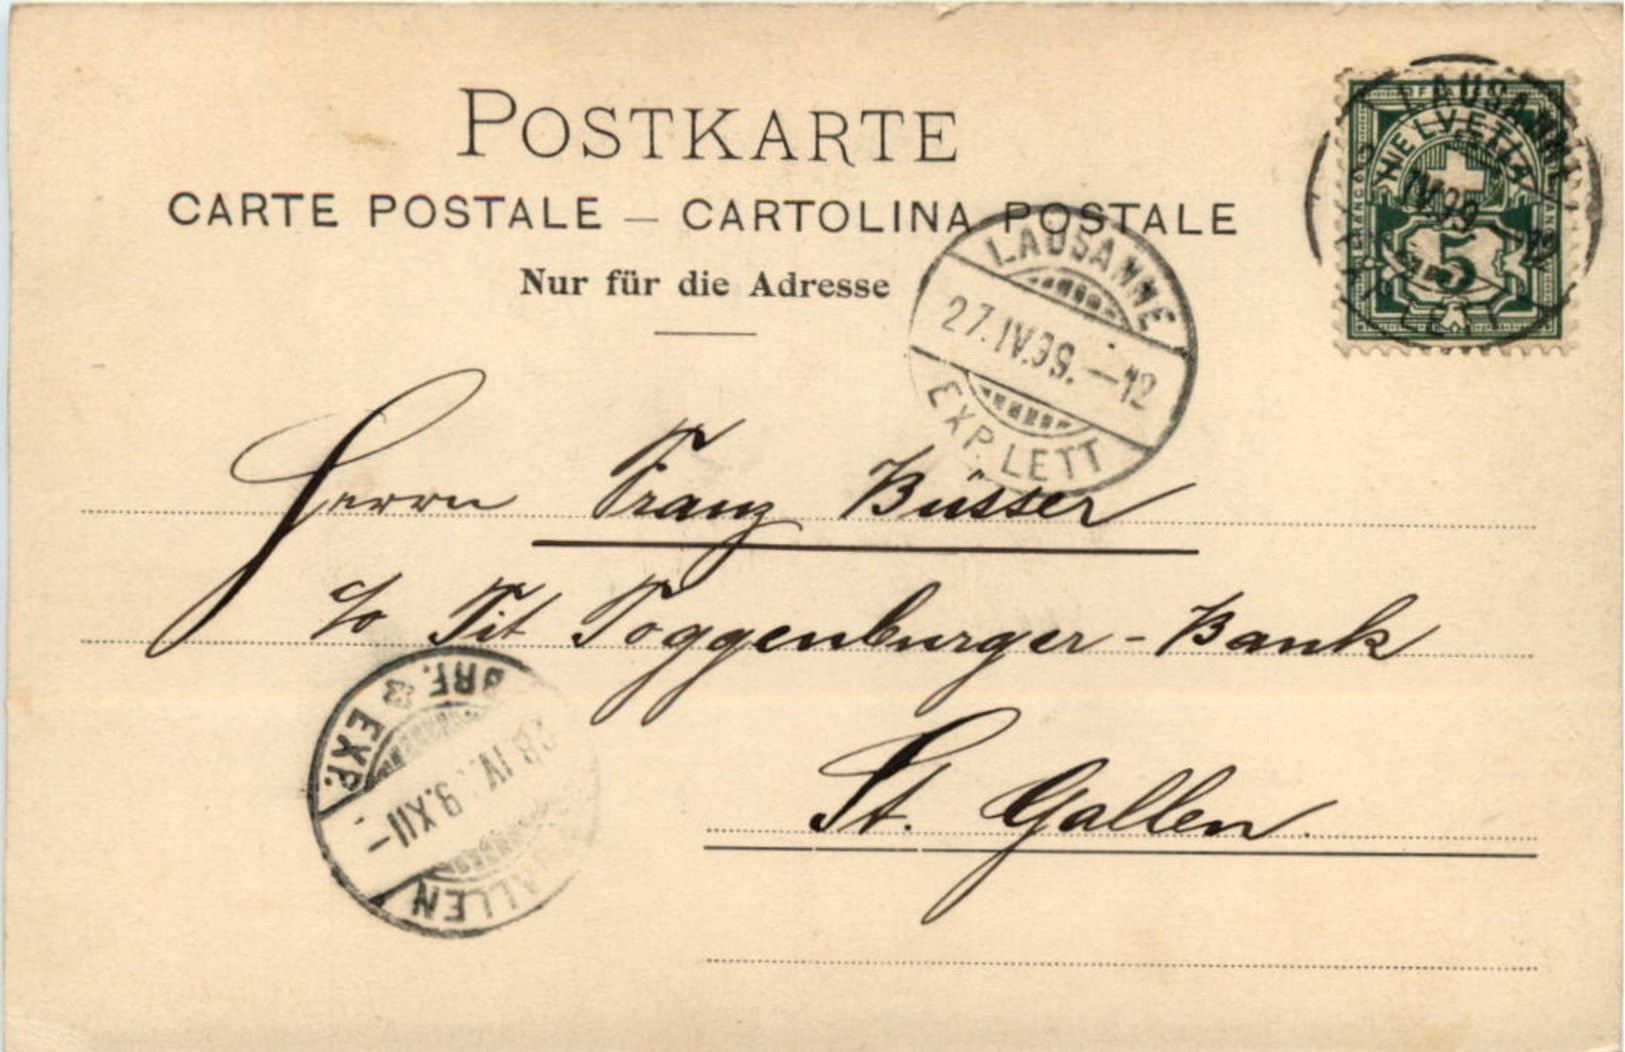 POSTKARTE
CARTE POSTALE — CARTOLINA POSTALE
Nur für die Adresse
HELVETIA
5
LAUSANNE
IV.99.
12
LETT
LAUSANNE
27.IV.99.–12
EXP. LETT
Herrn Franz Büsser
c/o Tit Toggenburger-Bank
St. Gallen.
BRF. EXP.
IV. 9.XII–
ALLEN